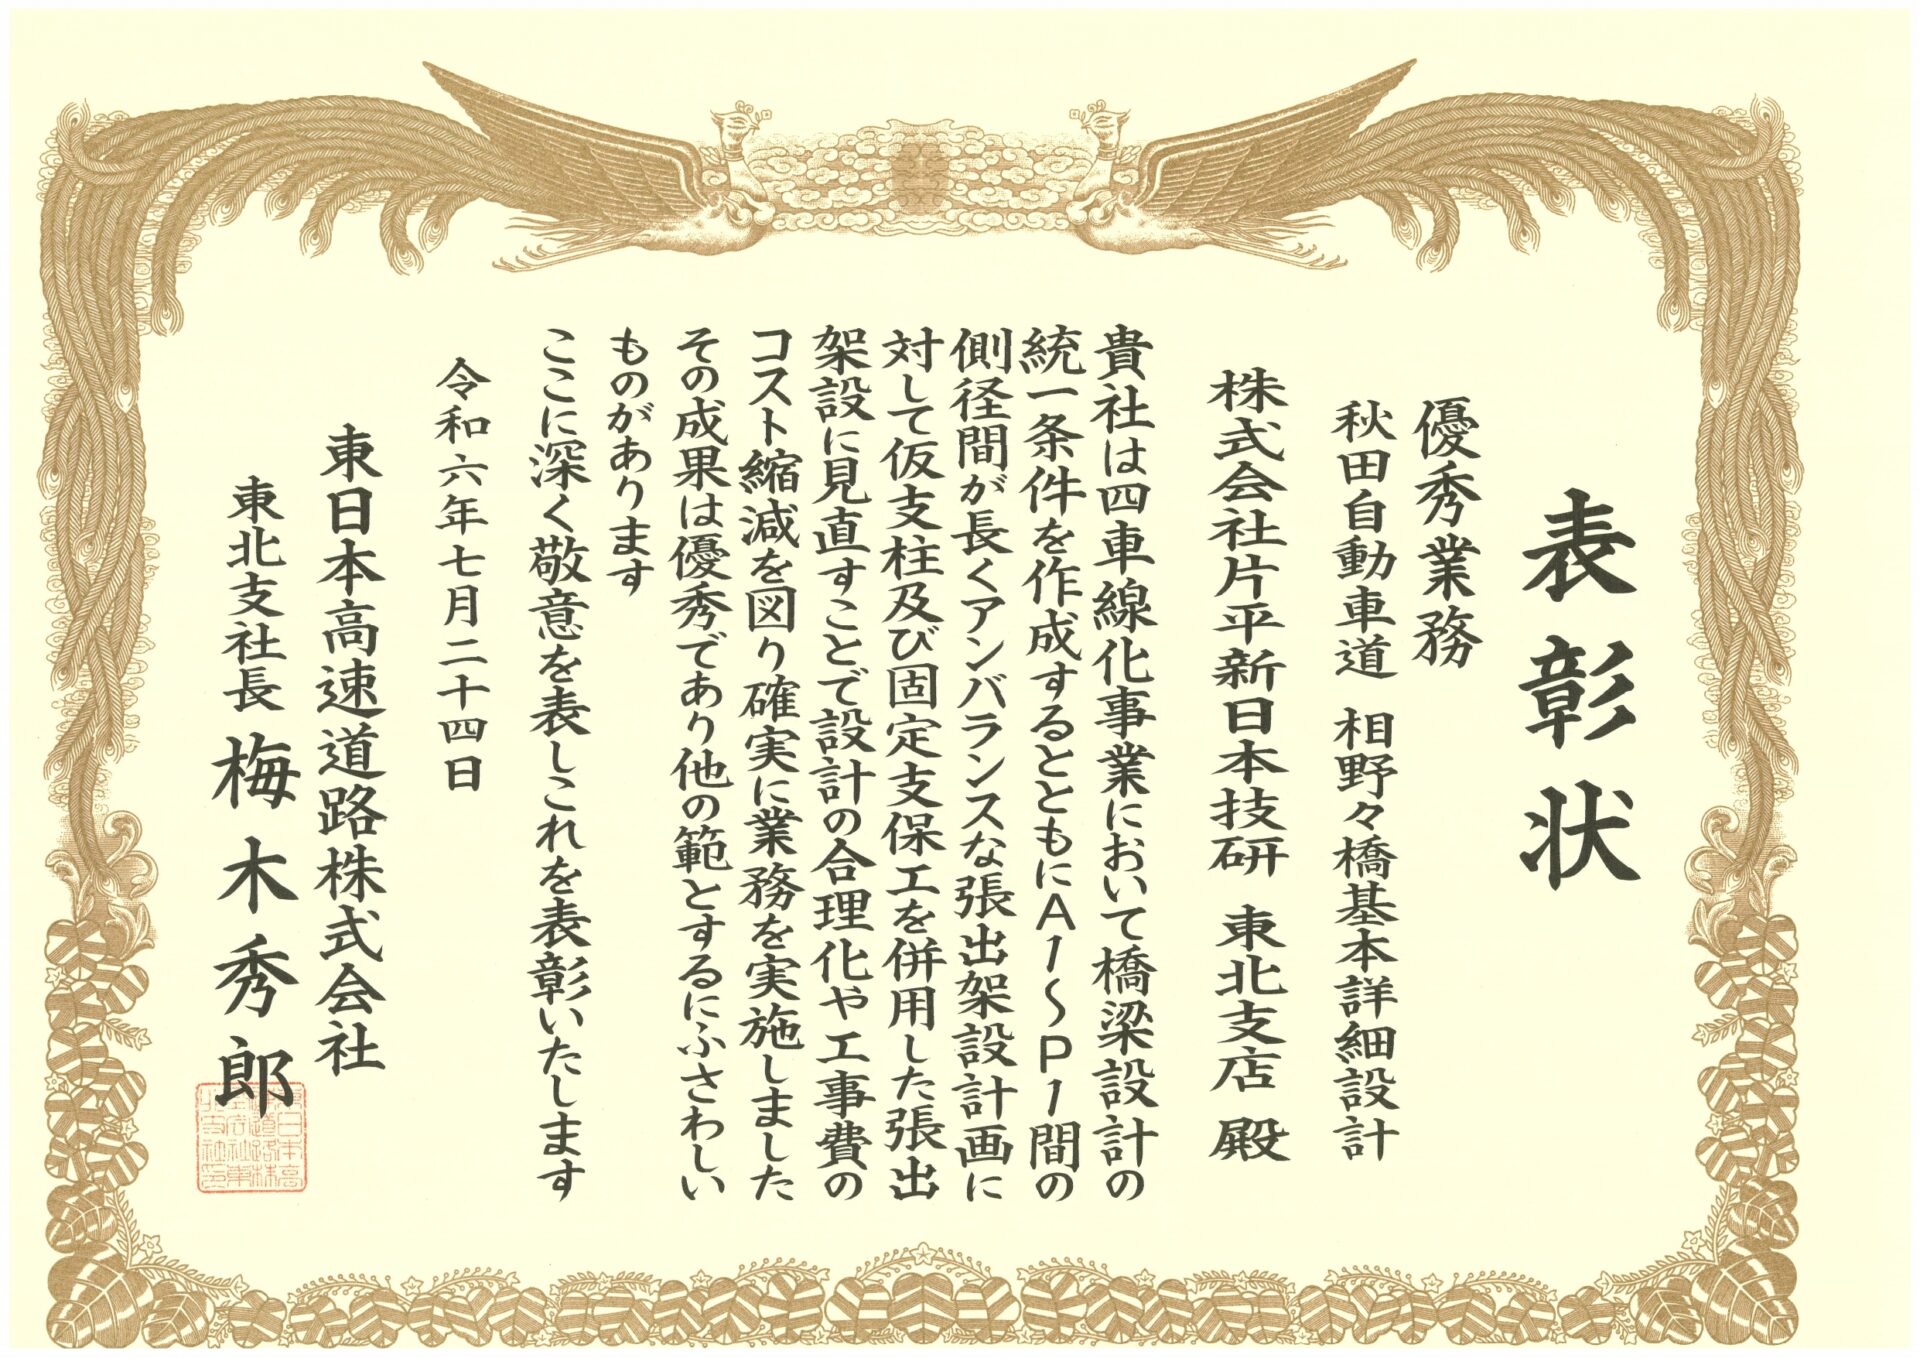 表彰状
優秀業務
秋田自動車道 相野々橋基本詳細設計
株式会社片平新日本技研 東北支店 殿
貴社は四車線化事業において橋梁設計の
統一条件を作成するとともにA1〜P1間の
側径間が長くアンバランスな張出架設計画に
対して仮支柱及び固定支保工を併用した張出
架設に見直すことで設計の合理化や工事費の
コスト縮減を図り確実に業務を実施しました
その成果は優秀であり他の範とするにふさわしい
ものがあります
ここに深く敬意を表しこれを表彰いたします
令和六年七月二十四日
東日本高速道路株式会社
東北支社長 梅木秀郎